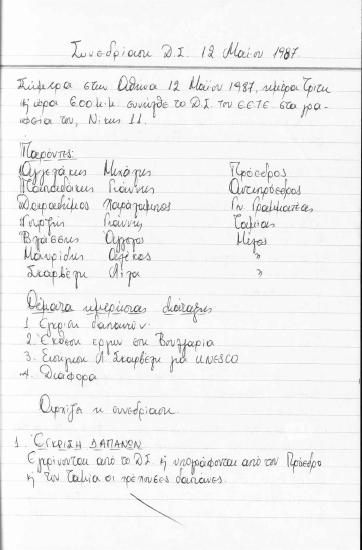 Συνεδρίαση Δ.Σ. 12 Μαΐου 1987.
Σήμερα στην Αθήνα 12 Μαΐου 1987, ημέρα Τρίτη
κ ώρα 6.00 μ.μ. συνήλθε το Δ.Σ. του Ε.Ε.Τ.Ε. στα γρα-
φεία του, Νίκης 11.
Παρόντες:
Αγγελάκης Μιχάλης Πρόεδρος
Παπαδάκης Γιάννης Αντιπρόεδρος
Χαράλαμπος Γεν. Γραμματέας
Γουρζής Γιάννης Ταμίας
Βλάσσης Άγγελος Μέλος
Μαυρίδης Αλέκος »
Σκαρβέλη Λίζα »
Θέματα ημερήσιας διάταξης
1. Έγκριση δαπανών
2. Έκθεση έργων στη Βουλγαρία
3. Εισήγηση Λ. Σκαρβέλη για UNESCO
4. Διάφορα
Αρχίζει η συνεδρίαση.
1. ΕΓΚΡΙΣΗ ΔΑΠΑΝΩΝ
Εγκρίνονται από το Δ.Σ. κ υπογράφονται από τον Πρόεδρο
κ τον Ταμία οι τρέχουσες δαπάνες.